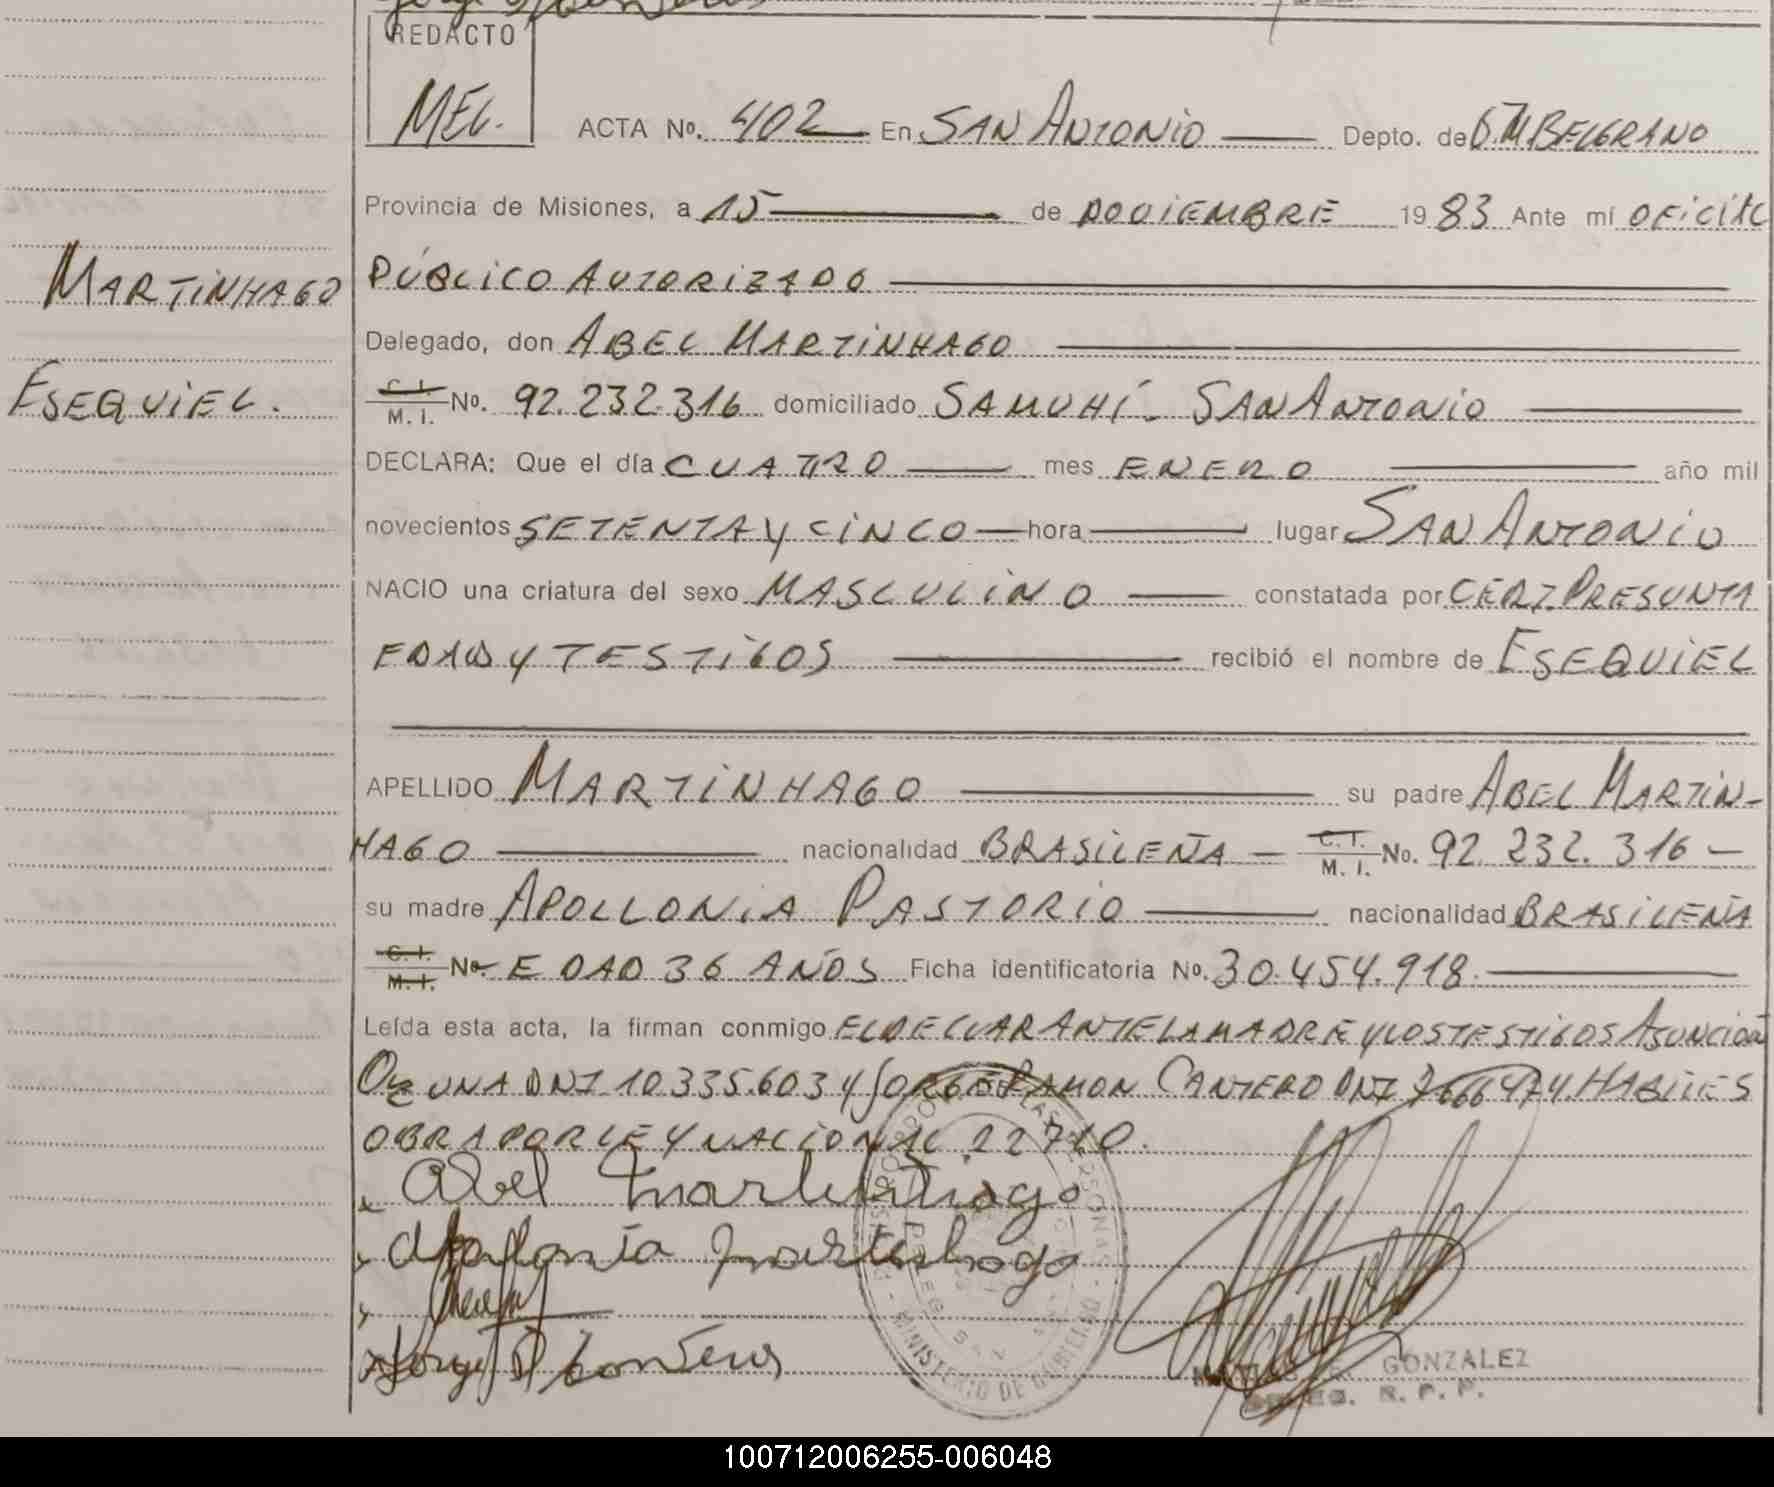 REDACTO
MEG.
ACTA No. 402 En SAN ANTONIO Depto. de G.M BELGRANO
Provincia de Misiones, a 15 de NOVIEMBRE 1983 Ante mí OFICIAL
PÚBLICO AUTORIZADO
MARTINHAGO
Delegado, don ABEL MARTINHAGO
ESEQUIEL.
C. I. M. I. No. 92.232.316 domiciliado SAMUHÍ - SAN ANTONIO
DECLARA: Que el día CUATRO mes ENERO año mil
novecientos SETENTA Y CINCO hora lugar SAN ANTONIO
NACIO una criatura del sexo MASCULINO constatada por CERT. PRESUNTA
EDAD Y TESTIGOS recibió el nombre de ESEQUIEL
APELLIDO MARTINHAGO su padre ABEL MARTIN-
HAGO nacionalidad BRASILEÑA - C. I. M. I. No. 92.232.316 -
su madre APOLLONIA PASTORIO nacionalidad BRASILEÑA
C. I. M. I. No. EDAD 36 AÑOS Ficha identificatoria No. 30.454.918.
Leída esta acta, la firman conmigo EL DECLARANTE LA MADRE Y LOS TESTIGOS ASUNCION
OZUNA DNI 10.335.603 Y JORGE RAMON CANTERO DNI 7.666.474. HABILES
OBRA POR LEY NACIONAL 22710.
Abel Martinhago
Apolonia Martinhago
Jorge R Cantero
MINISTERIO DE GOBIERNO
GONZALEZ
R. P. P.
100712006255-006048